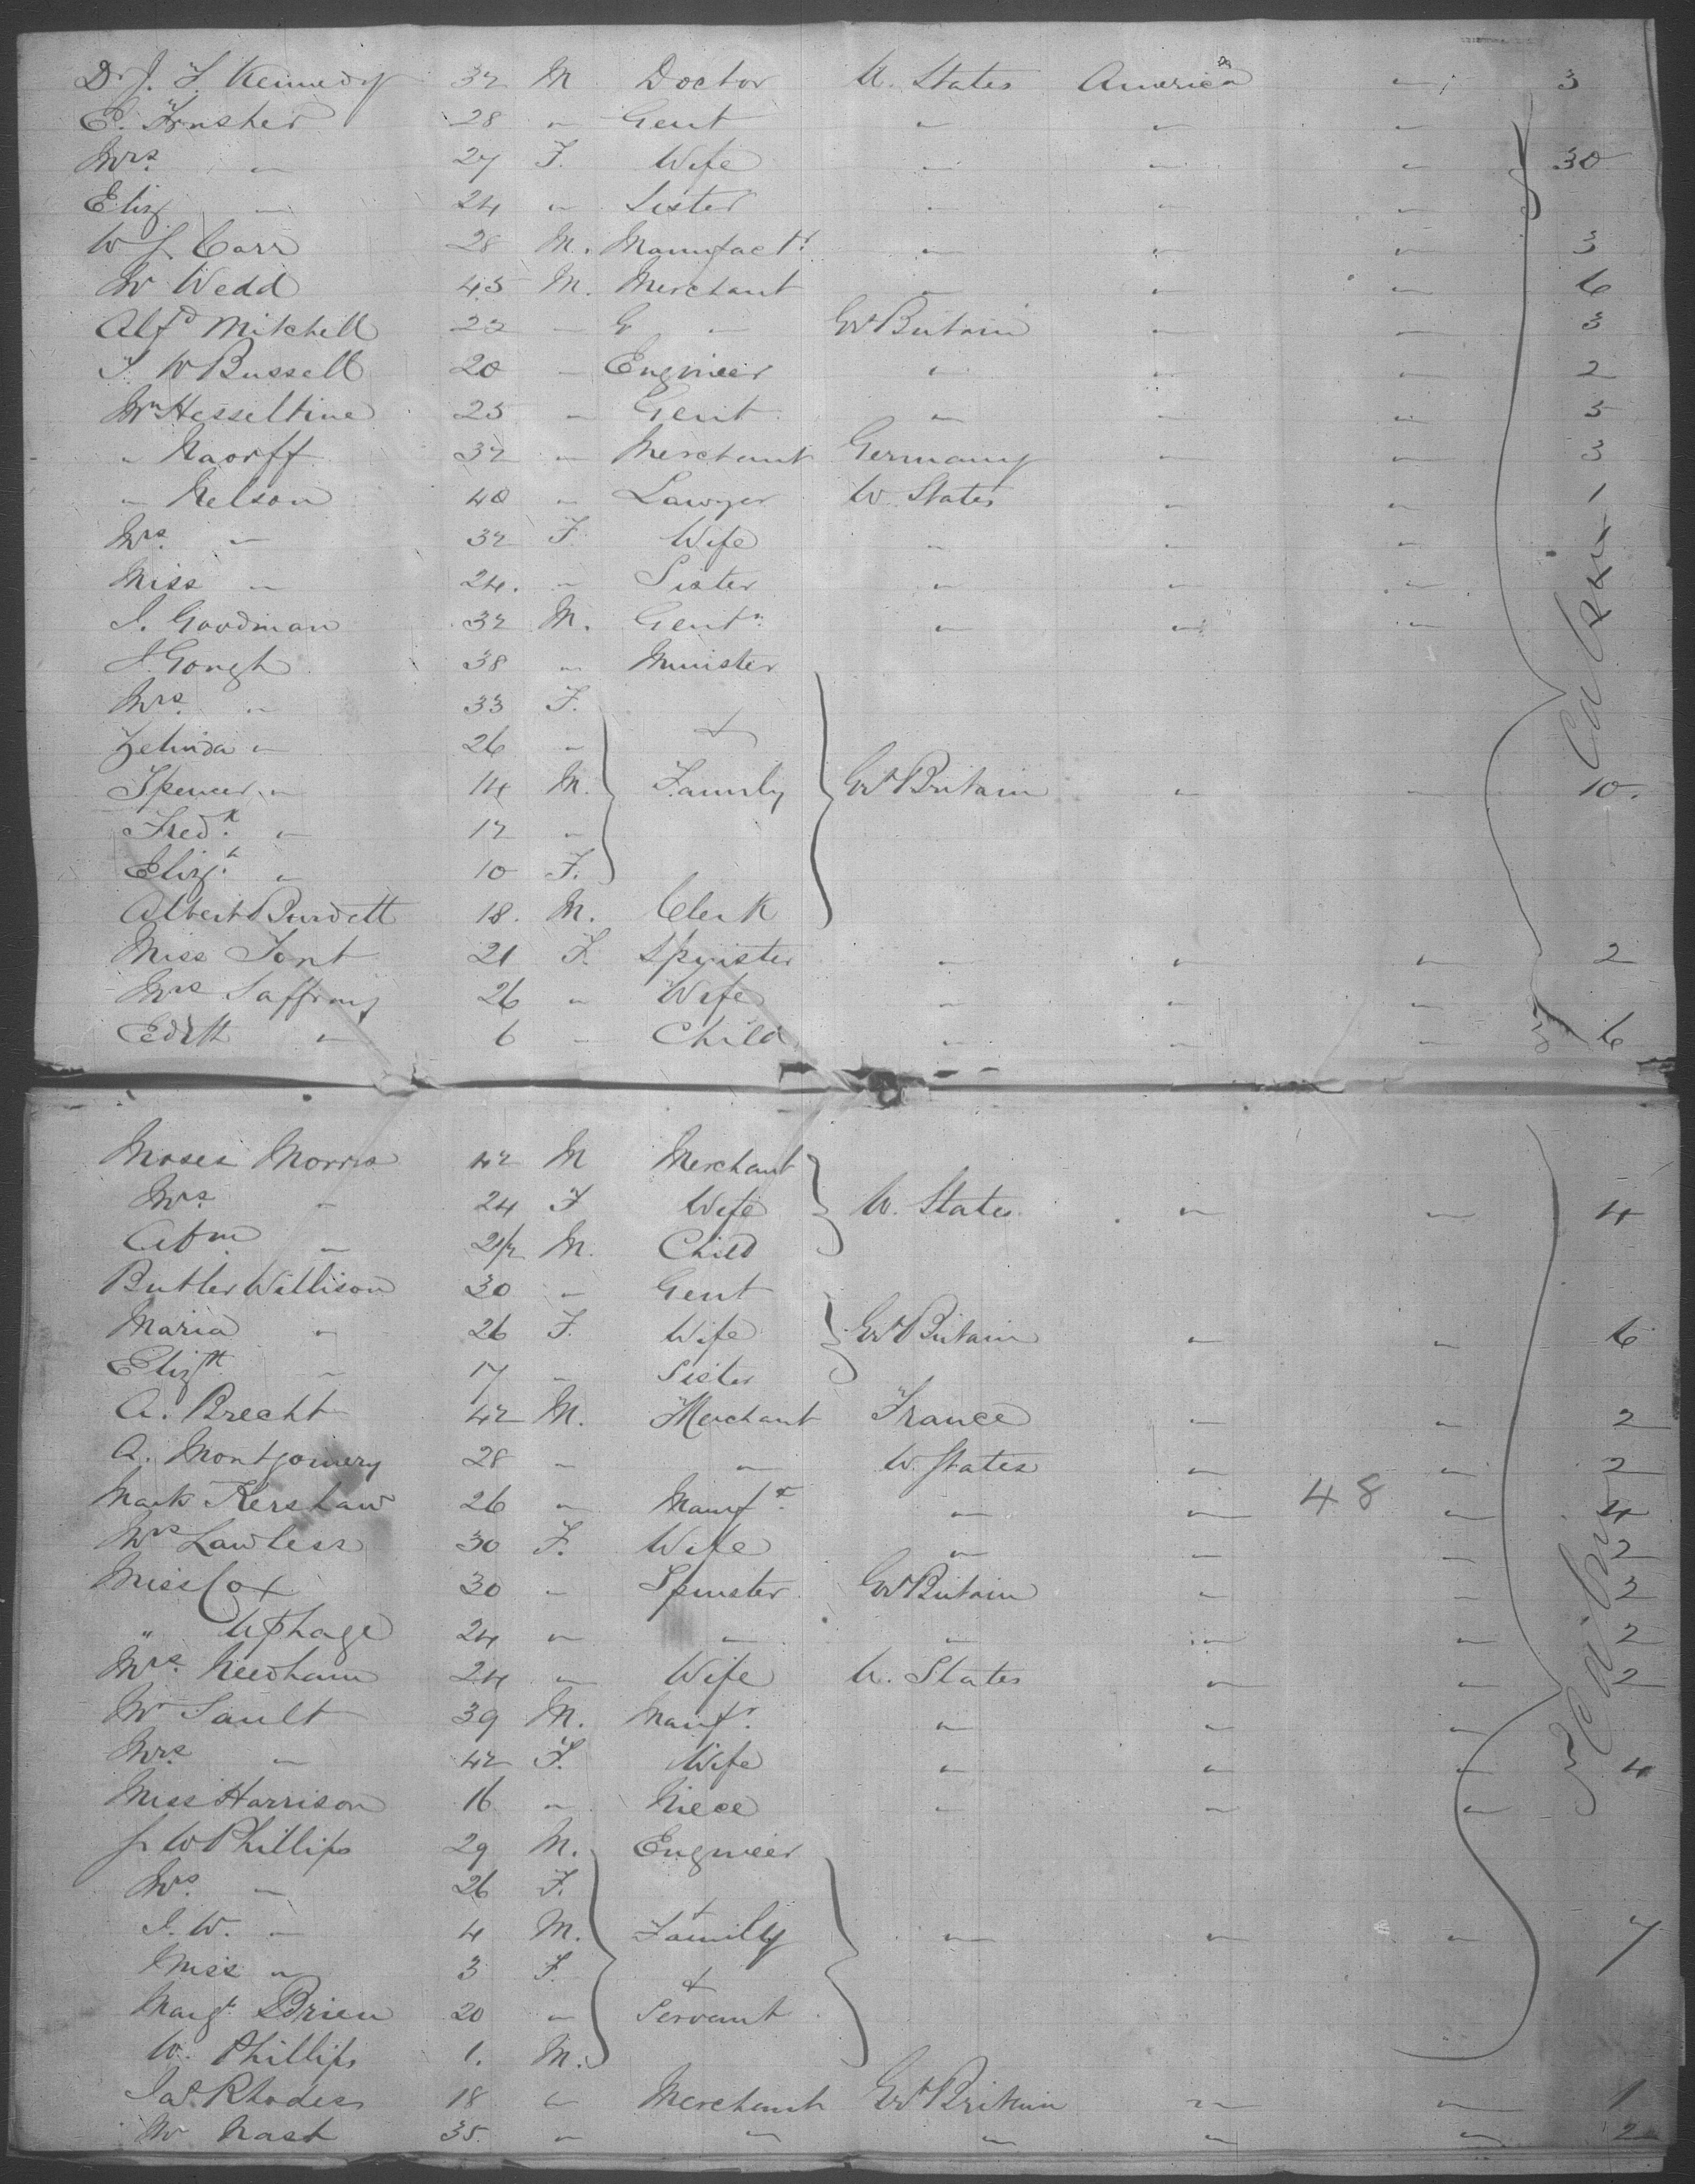 Dr J. F. Kennedy 32 M Doctor U. States America " 3
E. Frusher 28 " Gent " " "
Mrs. " 27 F. Wife " " " 30
Eliz " 24 " Sister " " "
W J. Carr 28 M. Manufactr. " " " 3
Mr Wedd 45 M. Merchant " " " 6
Alfd Mitchell 22 " G " Gt Britain " " 3
J. W Bussell 20 " Engineer " " " 2
Mr Hesseltine 25 " Gent " " " 5
" Naorff 32 " Merchant Germany " " 3
" Nelson 40 " Lawyer U. States " " 1
Mrs. " 32 F. Wife " " "
Miss " 24. " Sister " " "
J. Goodman 32 M. Gentn. " " "
J. Gough 38 " Minister
Mrs. " 33 F.
Zelinda " 26 " &
Spencer " 14 M. Family Gt Britain " " 10.
Fredk. " 12 "
Elizh. " 10 F.
Albert Burdett 18. M. Clerk
Miss Font 21 F. Spinster " " " 2
Mrs Saffrany 26 " Wife " " "
Edith " 6 " Child " " " 6
Cabin
Moses Morris 42 M Merchant
Mrs. " 24 F Wife U. States " " 4
Abm " 2 1/2 M. Child
Butler Willison 30 " Gent
Maria " 26 F. Wife Gt Britain " " 6
Elizth " 17 " Sister
A. Brecht 42 M. Merchant France " " 2
A. Montgomery 28 " " U. States " " 2
Mark Kershaw 26 " Manufr. " " 48 " 4
Mrs Lawless 30 F. Wife " " " 2
Miss Cox 30 " Spinster Gt Britain " " 2
" Uphage 24 " " " " " 2
Mrs. Needham 24 " Wife U. States " " 2
Mr Sault 39 M. Manufr. " " "
Mrs. " 42 F. Wife " " " 4
Miss Harrison 16 " Niece " " "
J. W Phillips 29 M. Engineer
Mrs. " 26 F. &
J. W. " 4 M. Family " " " 7
Miss " 3 F. &
Margt. Brien 20 " Servant
W. Phillips 1. M.
Jas. Rhodes 18 " Merchant Gt Britain " " 1
Mr Nast 35. " " " " " 2
Cabin